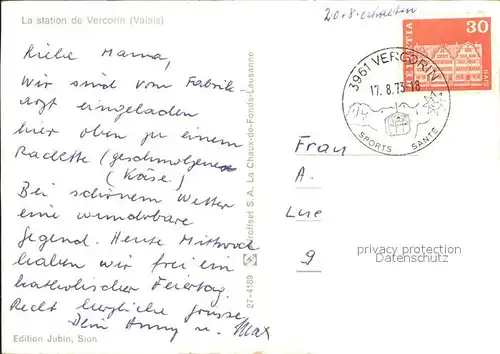 La station de Vercorin (Valais)
20.8. erhalten
Liebe Mama,
Wir sind vom Fabrik-
arzt eingeladen
hier oben zu einem
Raclette (geschmolzene
(Käse)
Bei schönem Wetter
eine wunderbare
Gegend. Heute Mittwoch
haben wir frei ein
katholischer Feiertag.
Recht herzliche Grüsse
Dein Anny u. Max
Edition Jubin, Sion
27-4189
offset S.A. La Chaux-de-Fonds-Lausanne
HELVETIA
30
GAIS
3961 VERCORIN
17.8.73-18
SPORTS SANTÉ
Frau
A.
Lue
9
privacy protection
Datenschutz